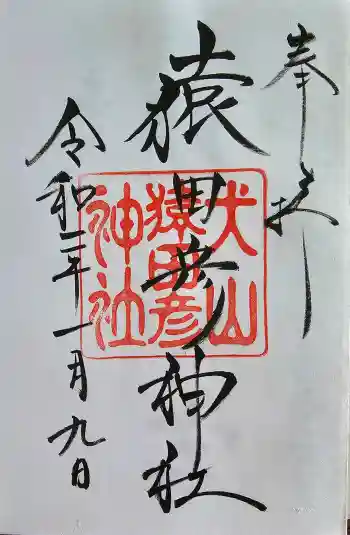 奉拝
猿田彦神社
令和二年一月九日
犬山
猿田彦
神社